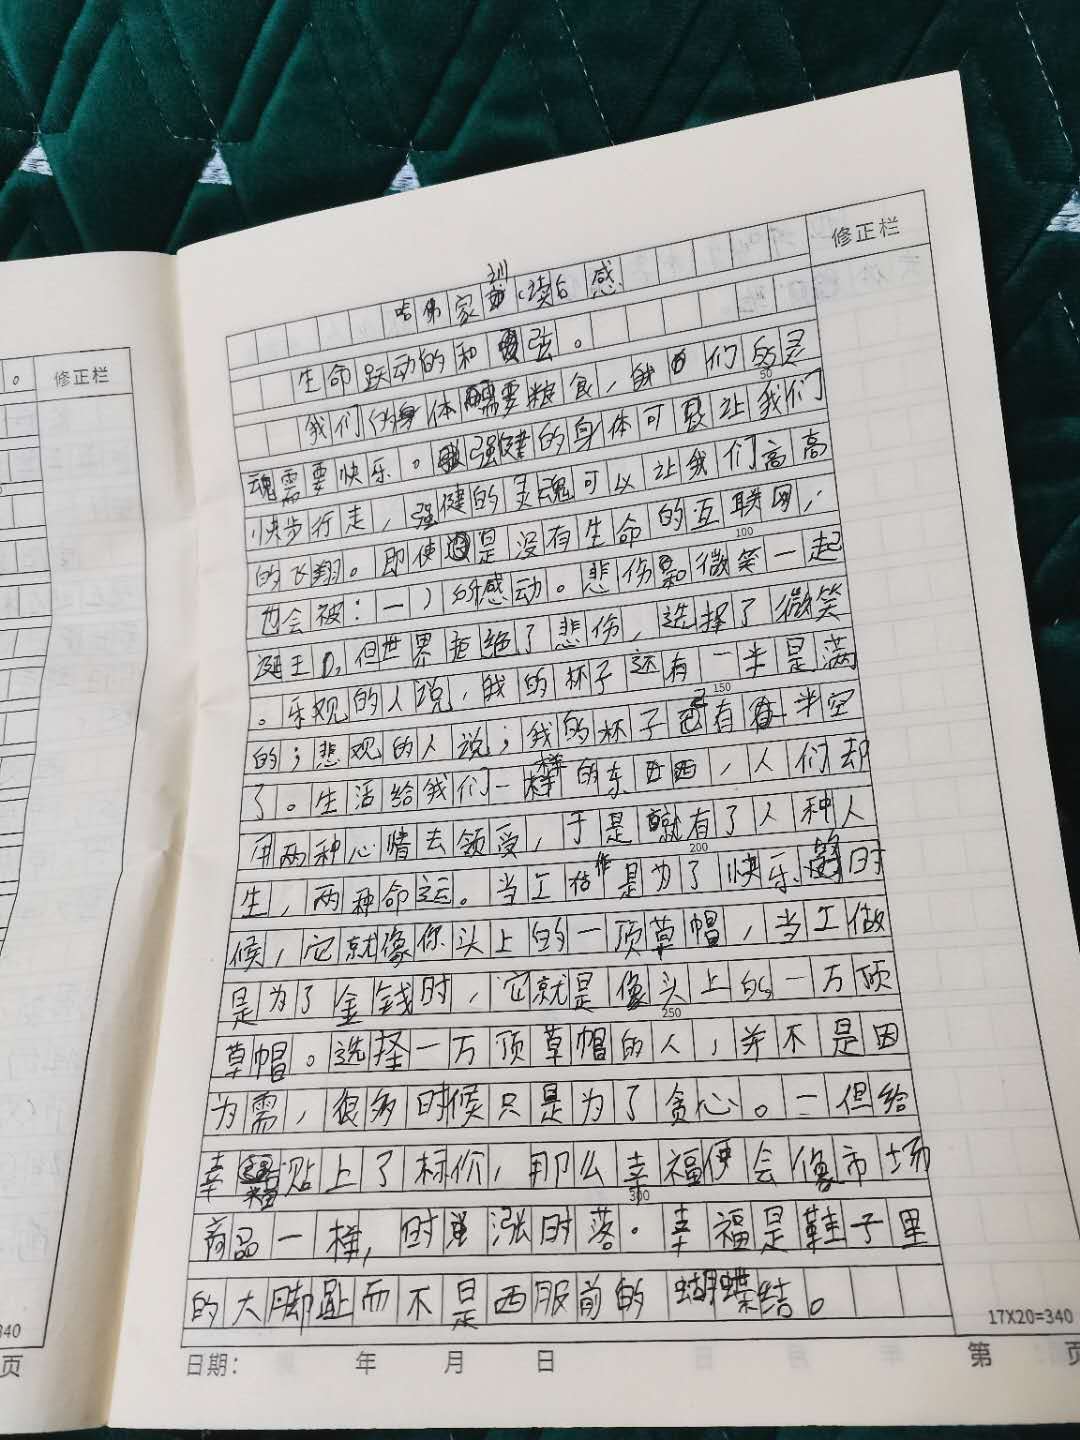 修正栏
。 修正栏
哈佛家训读后感
生命跃动的和弦。
我们的身体需要粮食，我们的灵
50
魂需要快乐。强健的身体可以让我们
快步行走，强健的灵魂可以让我们高高
的飞翔。即使是没有生命的互联网，
100
也会被：一）所感动。悲伤和微笑一起
诞王，但世界拒绝了悲伤，选择了微笑
。乐观的人说，我的杯子还有一半是满
150
的；悲观的人说；我的杯子已有一半空
了。生活给我们一样的东西，人们却
用两种心情去领受，于是就有了人种人
200
生，两种命运。当工作是为了快乐的时
候，它就像你头上的一顶草帽，当工做
是为了金钱时，它就是像头上的一万顶
250
草帽。选择一万顶草帽的人，并不是因
为需，很多时候只是为了贪心。一但给
幸福贴上了标价，那么幸福便会像市场
300
商品一样，时涨时落。幸福是鞋子里
的大脚趾而不是西服前的蝴蝶结。
17X20=340
340
页
日期： 年 月 日 第 页